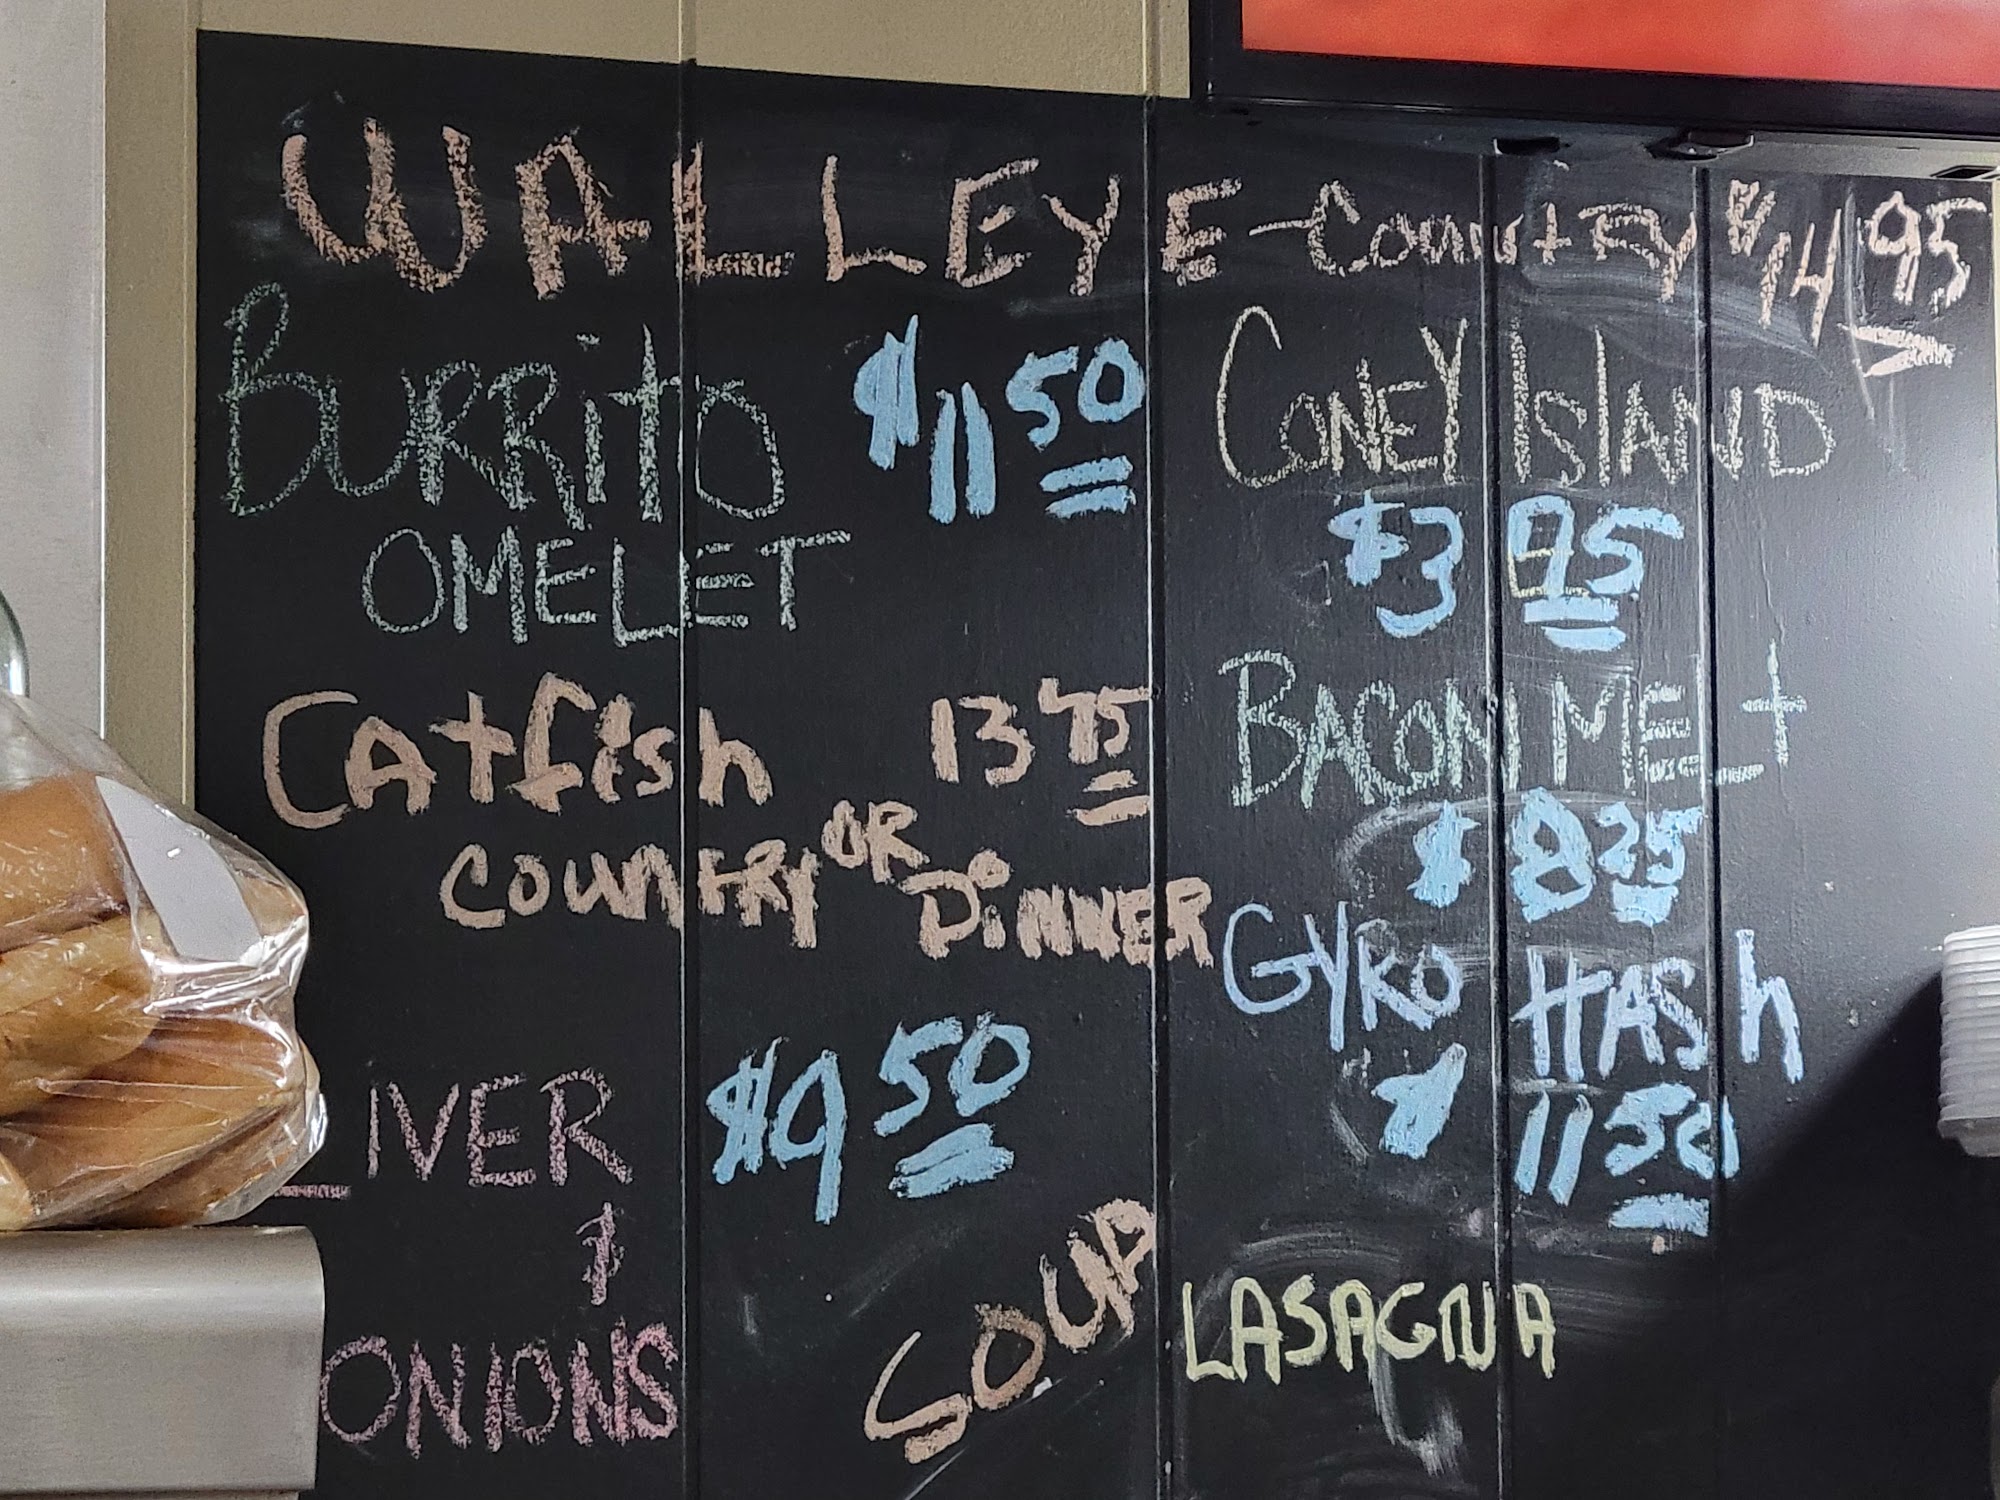 WALLEYE-Country $14 95
BURRito $11 50
OMELET
CAtfish 13 95
COUNTRY OR DiNNER
LIVER $9 50
&
ONIONS
SOUP
CONEY ISLAND
$3 95
BACON MELt
$8 25
GYRO HASh
$11 50
LASAGNA